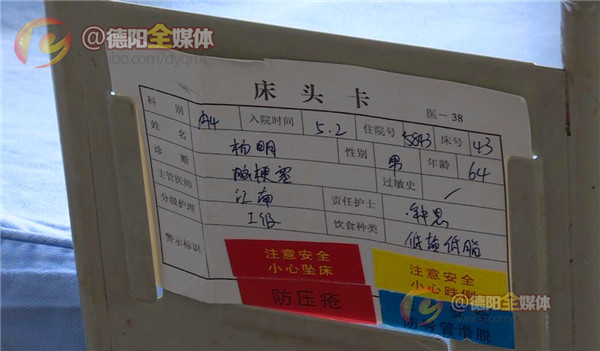 @德阳全媒体
床头卡
医－38
科别 内4 入院时间 5.2 住院号 5843 床号 43
姓名 杨明 性别 男 年龄 64
诊断 脑梗塞 过敏史 /
主管医师 江南 责任护士
分级护理 I级 饮食种类 低盐低脂
警示标识
注意安全
小心坠床
防压疮
注意安全
小心跌倒
@德阳全媒体
防导管滑脱